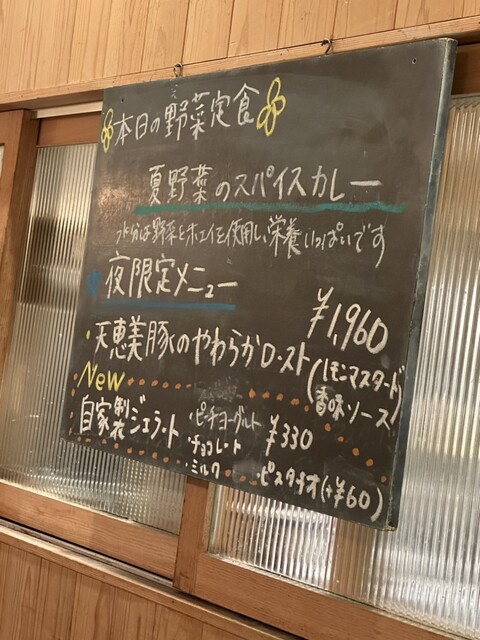 本日の野菜定食
夏野菜のスパイスカレー
水分は野菜とホエイを使用し、栄養いっぱいです
夜限定メニュー
¥1,960
・天恵美豚のやわらかロースト(レモンマスタード
香味ソース)
New
自家製ジェラート
・ピーチヨーグルト
¥330
・チョコレート
・ミルク
・ピスタチオ(+¥60)